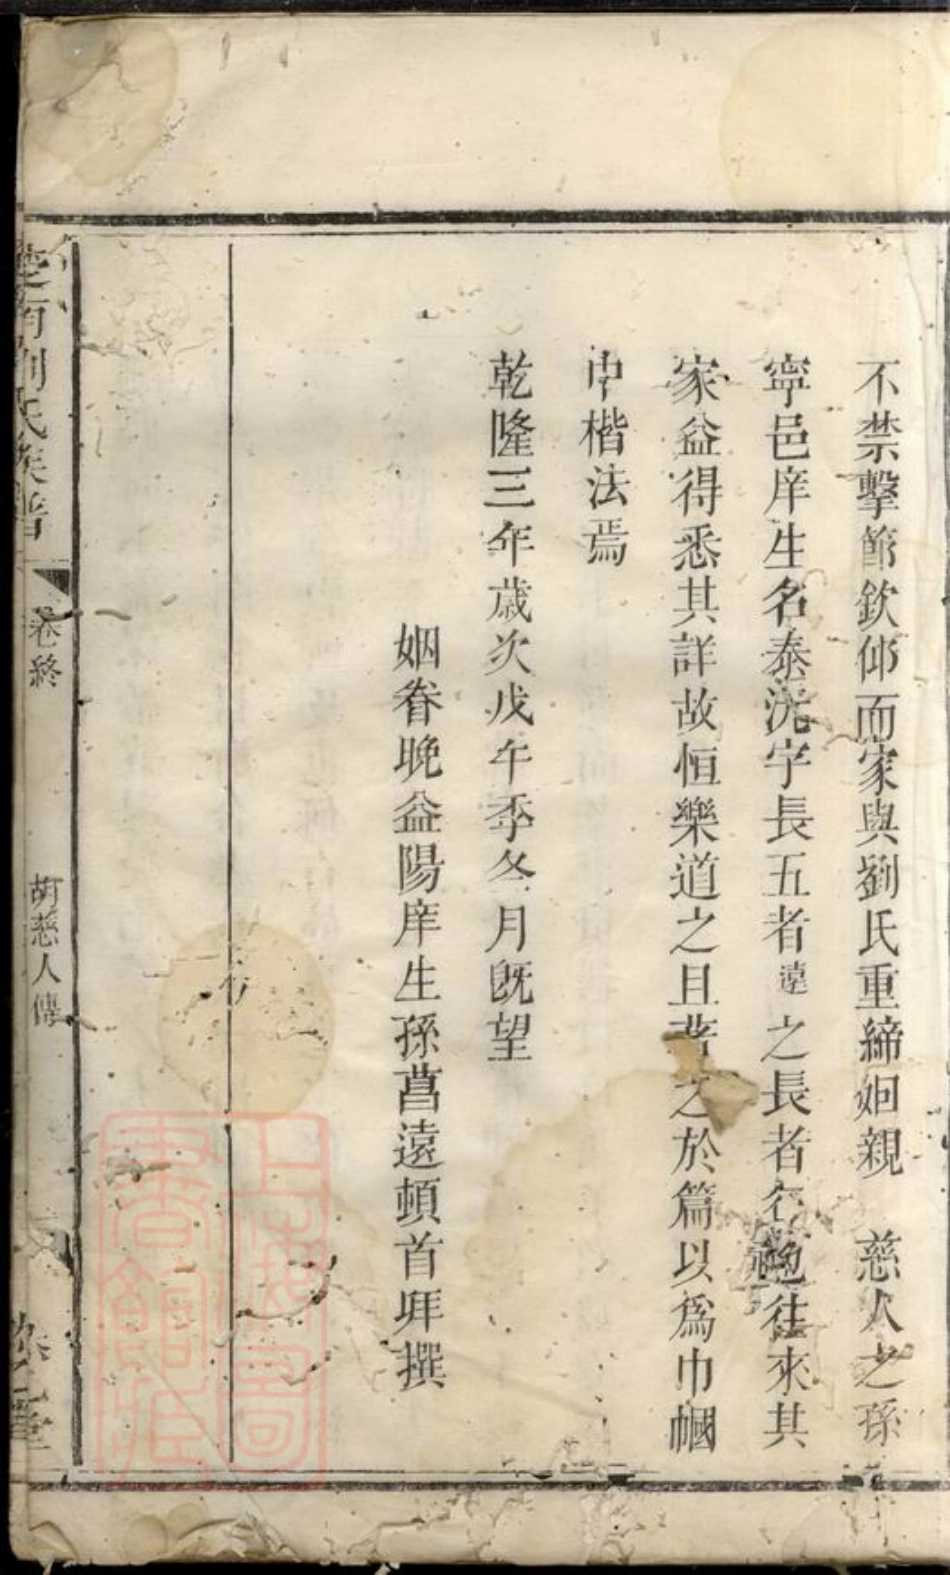 不禁擊節欽仰而家與劉氏重締姻親　慈人之孫
寧邑庠生名泰洸字長五者遠之長者行也往來其
家益得悉其詳故恒樂道之且著之於篇以爲巾幗
中楷法焉
乾隆三年歲次戊午季冬月旣望
姻眷晚益陽庠生孫菖遠頓首拜撰
南劉氏族譜
卷終
胡慈人傳
上海圖
書館藏